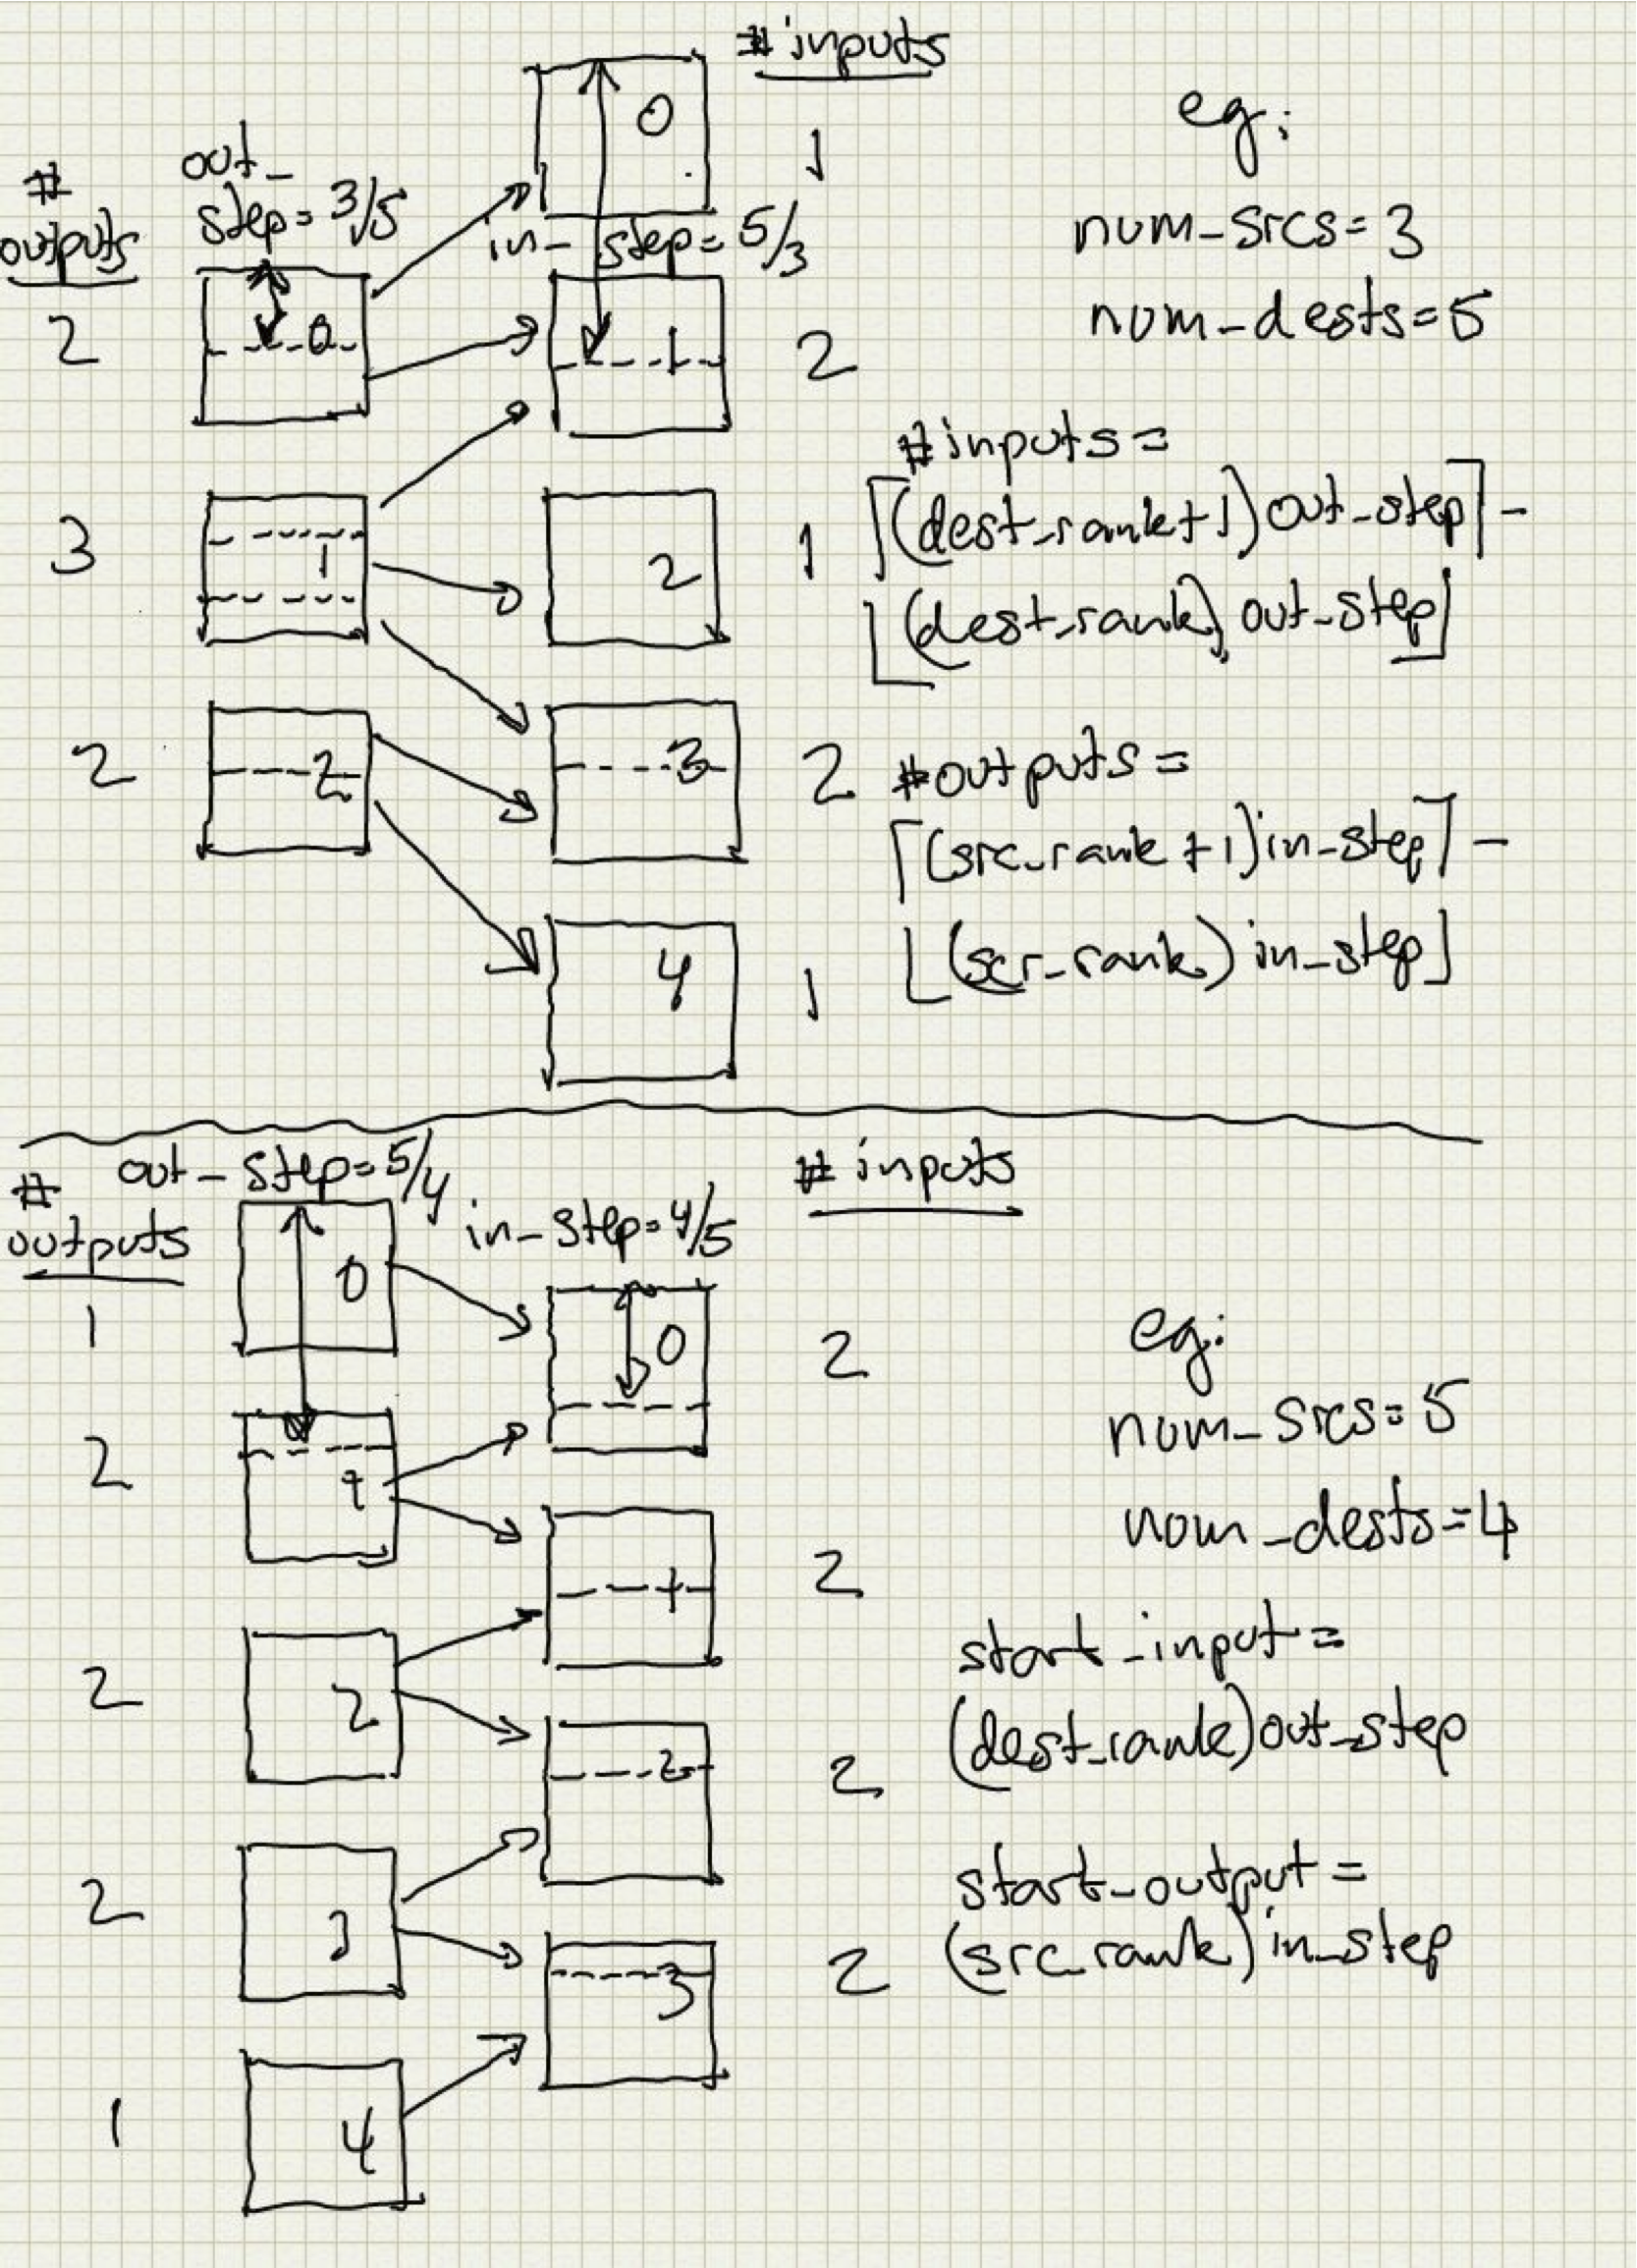 # inputs
0
1
#
outputs
out_
step = 3/5
in_step = 5/3
2
0
1
2
3
1
2
1
2
2
3
2
4
1
eg:
num_srcs = 3
num_dests = 5
#inputs =
⌈(dest_rank+1) out_step⌉ -
⌊(dest_rank) out_step⌋
#outputs =
⌈(src_rank+1) in_step⌉ -
⌊(scr_rank) in_step⌋
#
outputs
out_step = 5/4
in_step = 4/5
# inputs
1
0
0
2
2
1
1
2
2
2
2
2
2
3
3
2
1
4
eg:
num_srcs = 5
num_dests = 4
start_input =
(dest_rank) out_step
start_output =
(src_rank) in_step